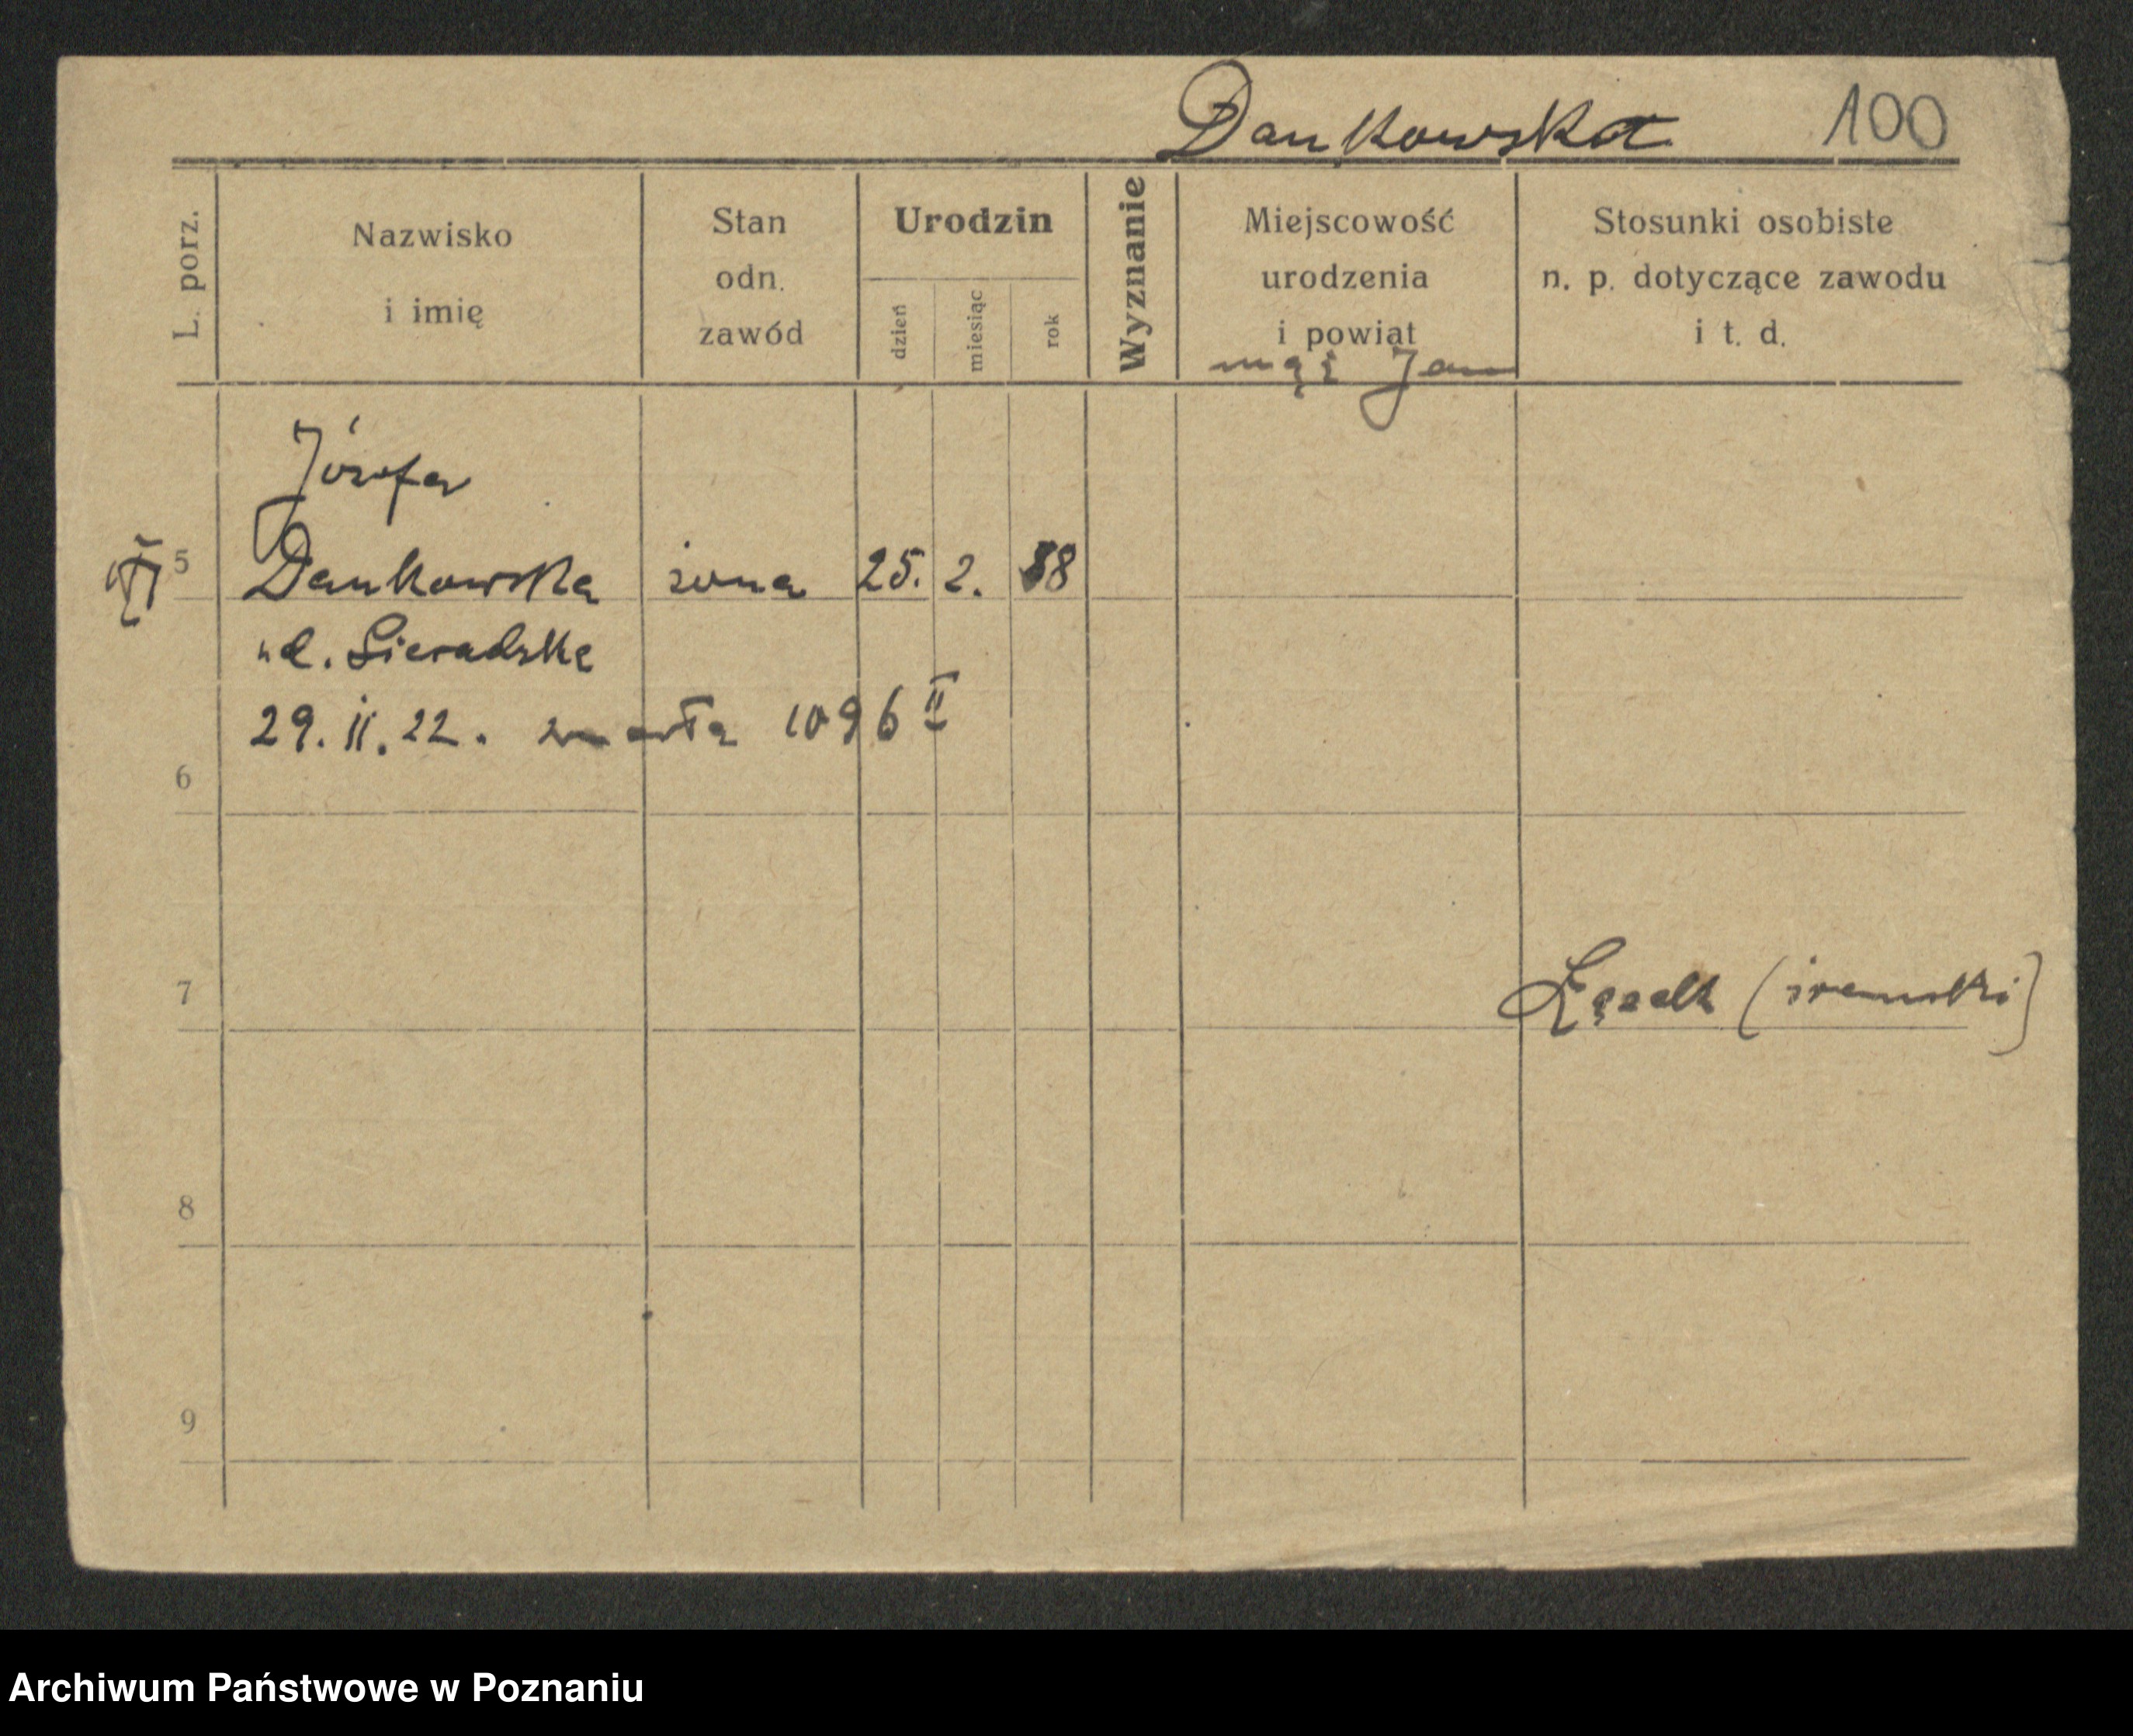 Dankowska 100
L. porz.
Nazwisko
i imię
Stan
odn.
zawód
Urodzin
dzień
miesiąc
rok
Wyznanie
Miejscowość
urodzenia
i powiat
mąż Jan
Stosunki osobiste
n. p. dotyczące zawodu
i t. d.
Józefa
5 Dankowska żona 25. 2. 88
ud. Sieradzka
29. II. 22. zmarła 1096 II
6
7 Łęzek (śremski)
8
9
Archiwum Państwowe w Poznaniu